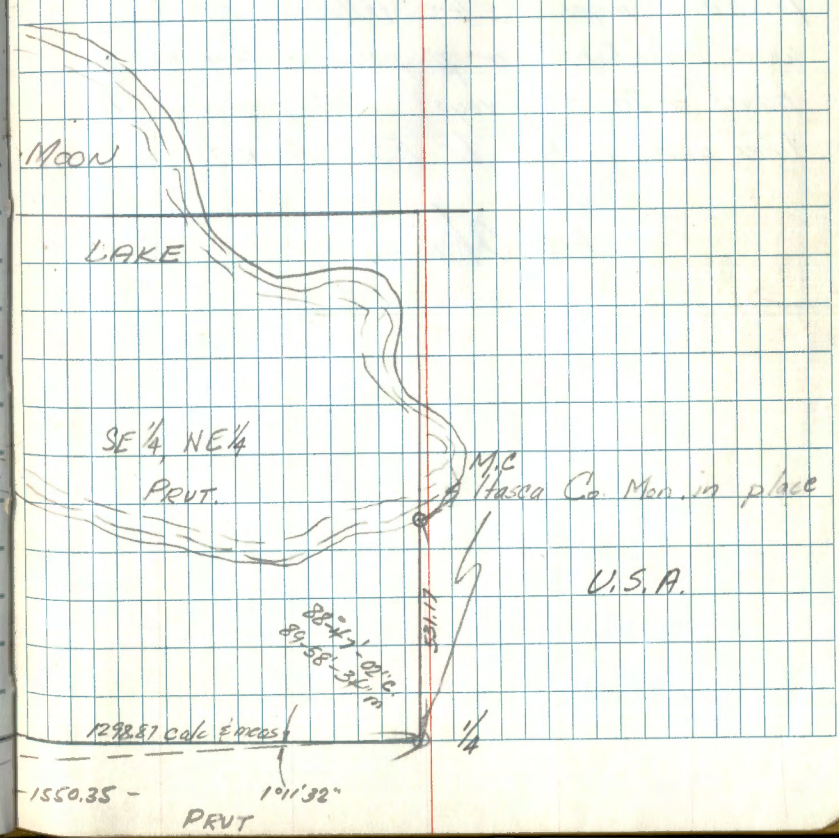 MOON
LAKE
SE 1/4, NE 1/4
PRVT.
M.C
Itasca Co. Mon. in place
U.S.A.
531.17
88°-47'-02" c.
89-58'-34" m
1298.87 calc & meas
1/4
1550.35 -
1°11'32"
PRVT